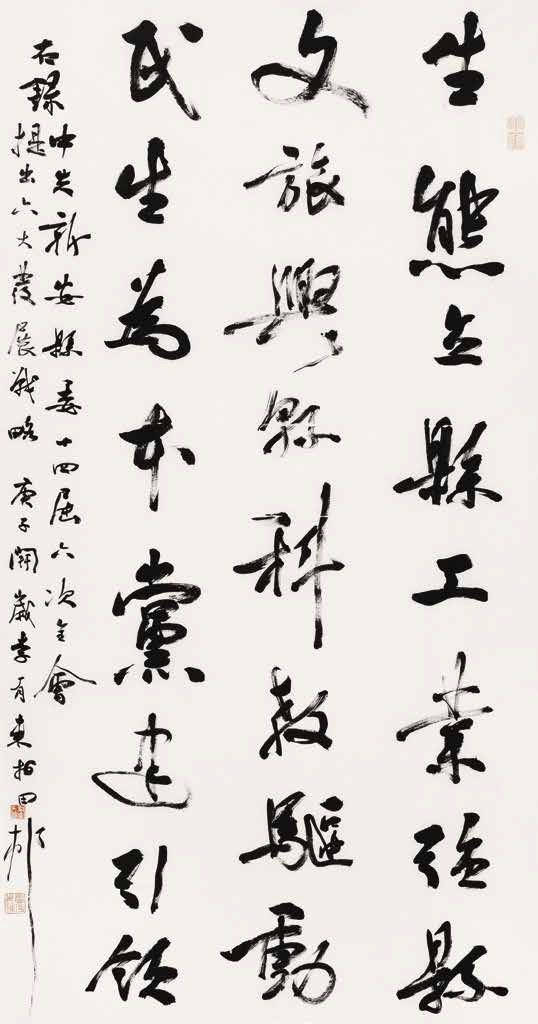 生態立縣工業强縣
文旅興縣科教驅動
民生為本黨建引領
右録中共新安縣委十四届六次全會
提出六大發展戰略 庚子開歲李有來於田邨